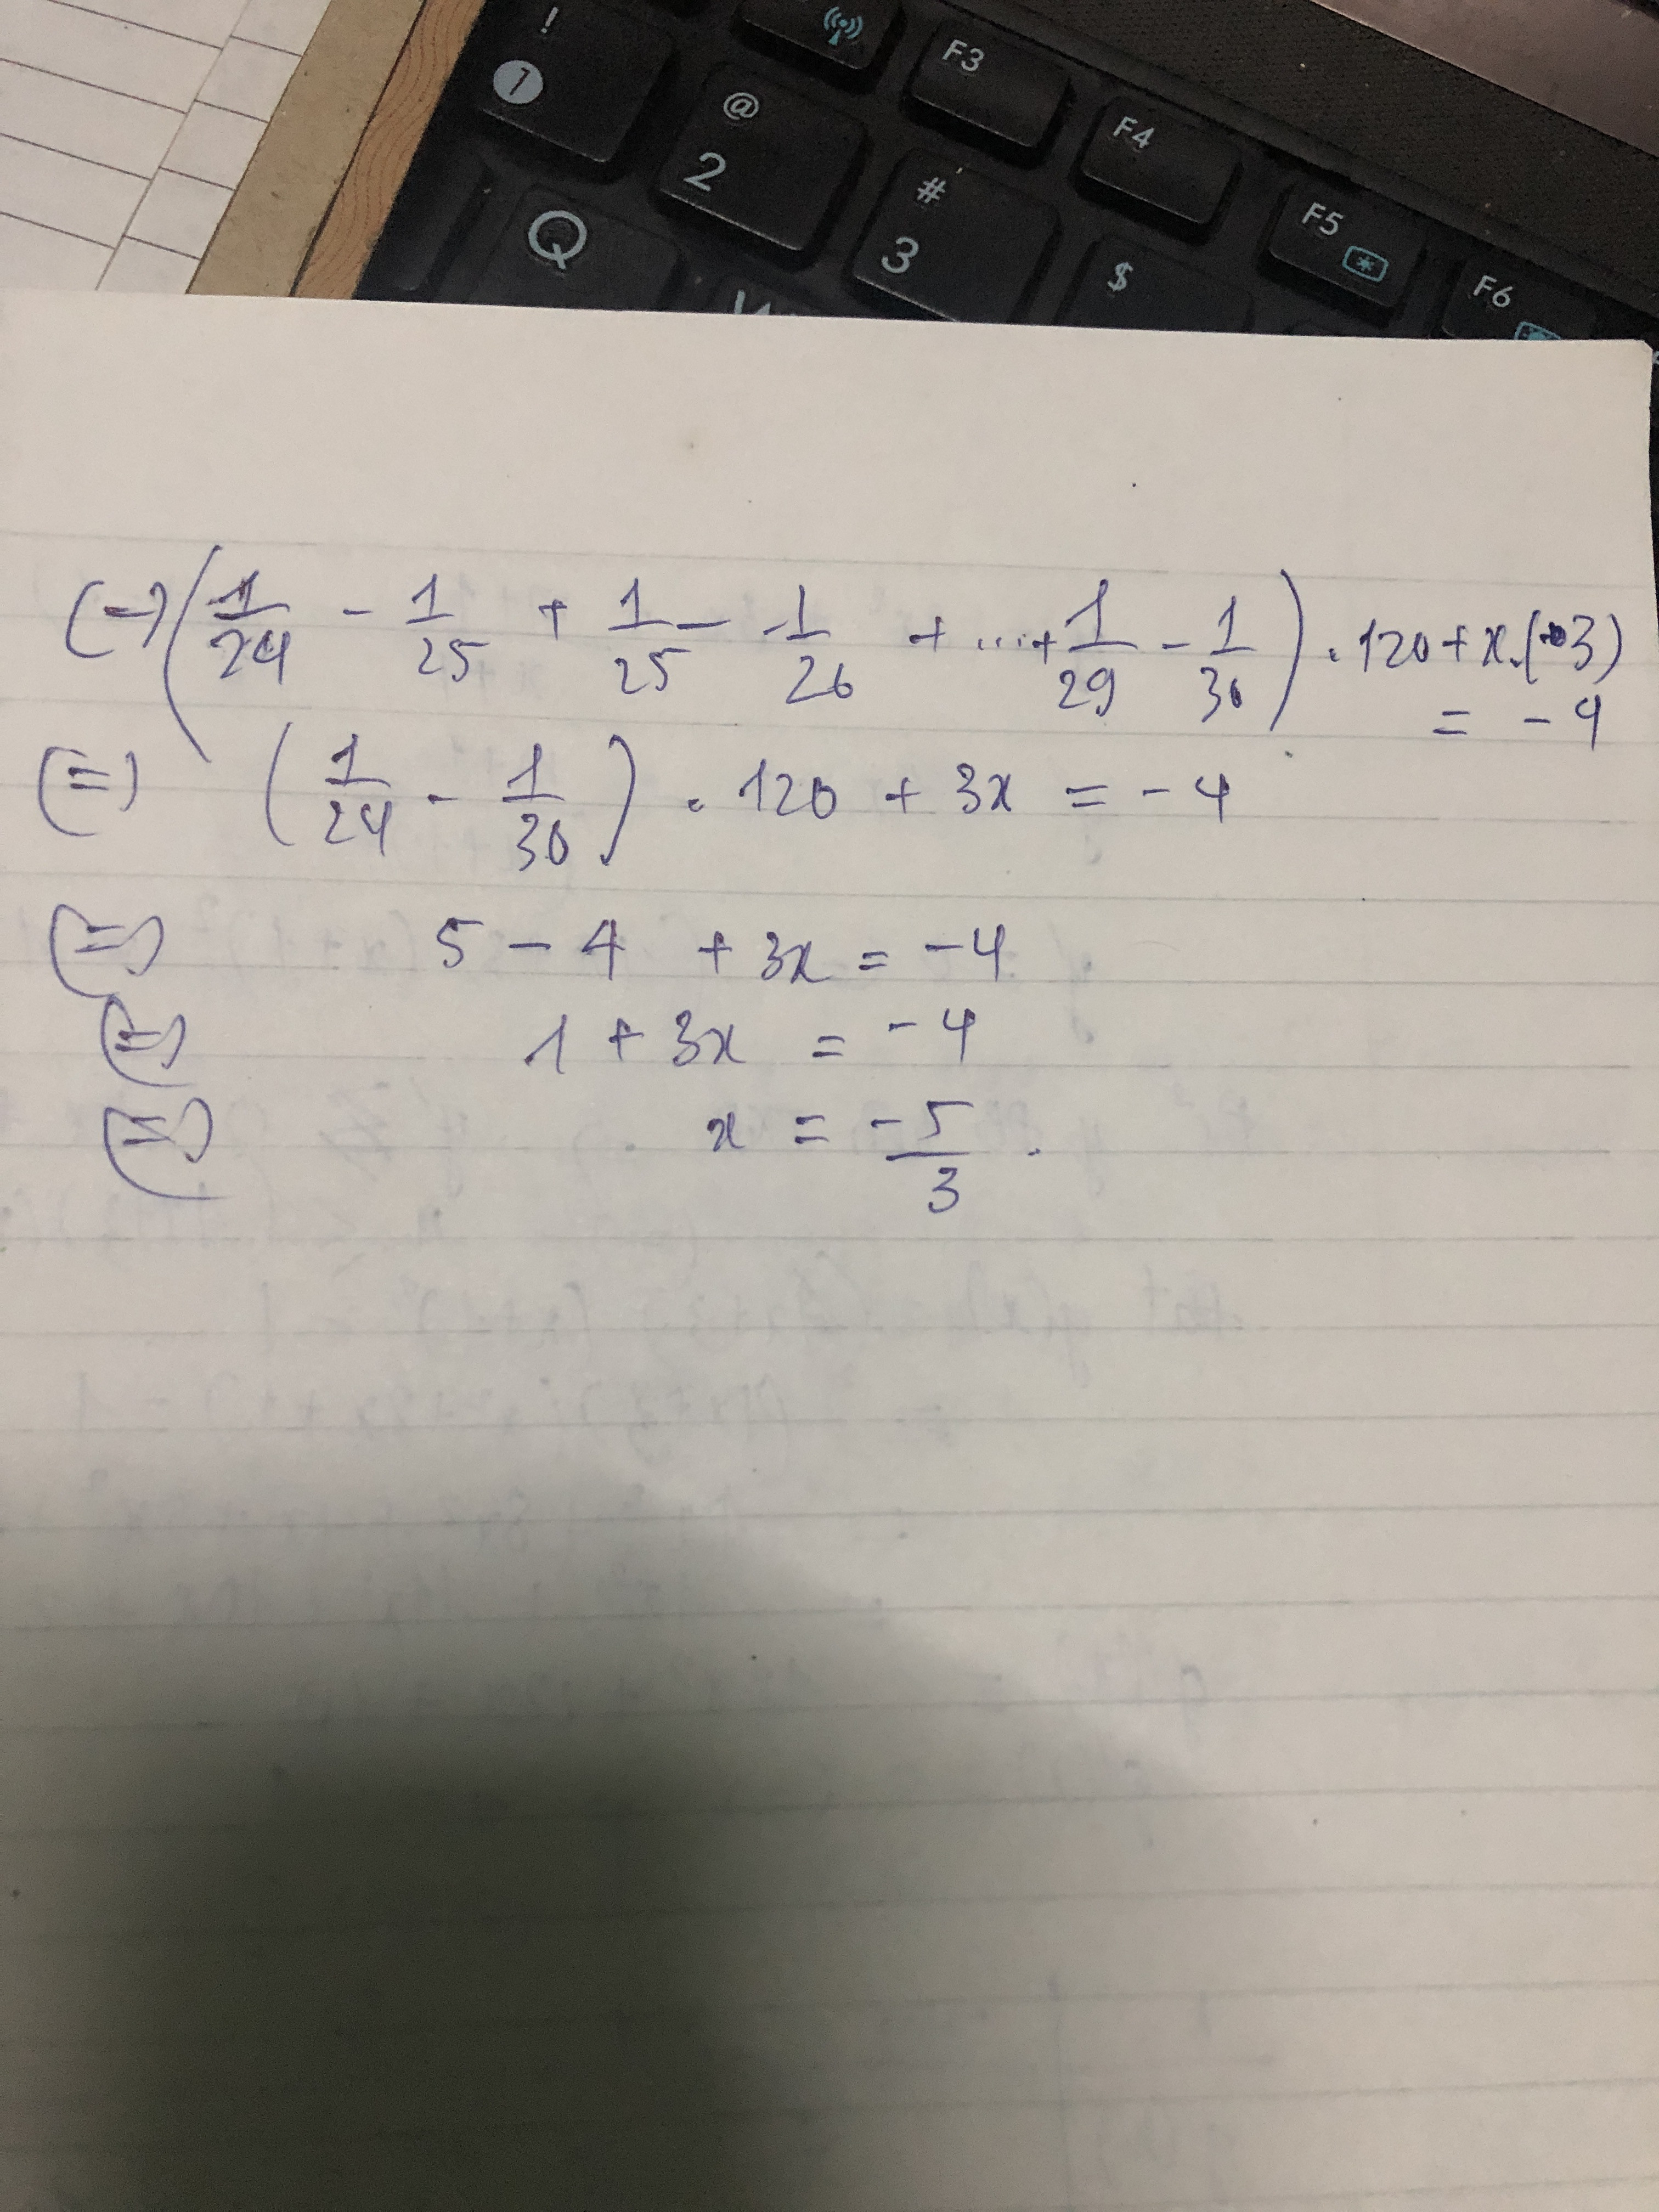 ! F3
1 @ F4
2 # F5
Q 3 $ F6
(=) (1/24 - 1/25 + 1/25 - 1/26 + ... + 1/29 - 1/30) . 120 + x.(3)
= -4
(=) (1/24 - 1/30) . 120 + 3x = -4
(=) 5 - 4 + 3x = -4
(=) 1 + 3x = -4
(=) x = -5/3 .